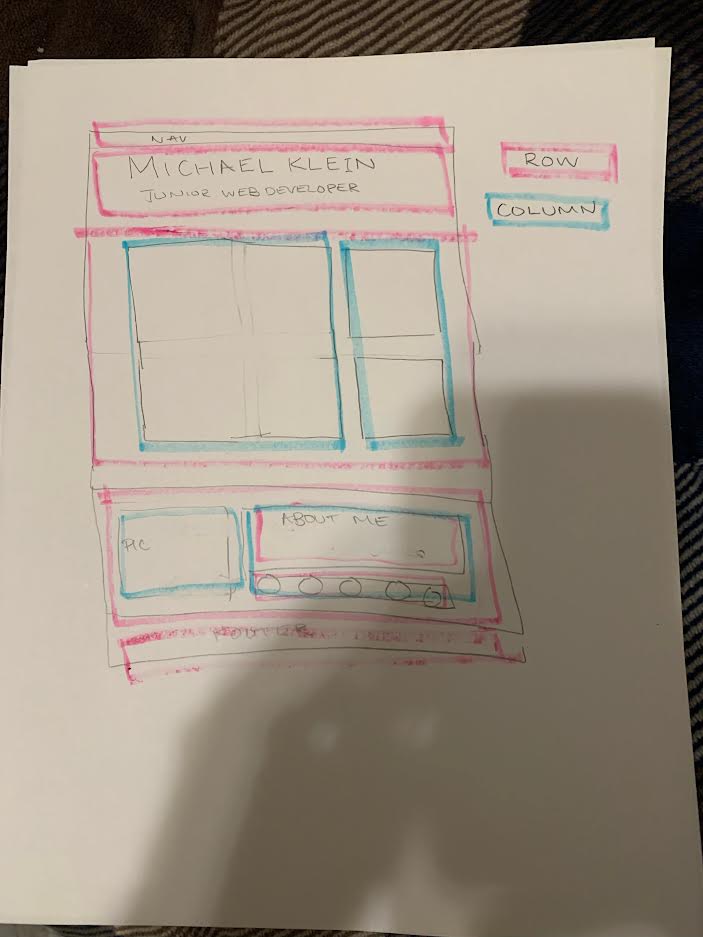 NAV
MICHAEL KLEIN
JUNIOR WEB DEVELOPER
ROW
COLUMN
ABOUT ME
PIC
FOOTER